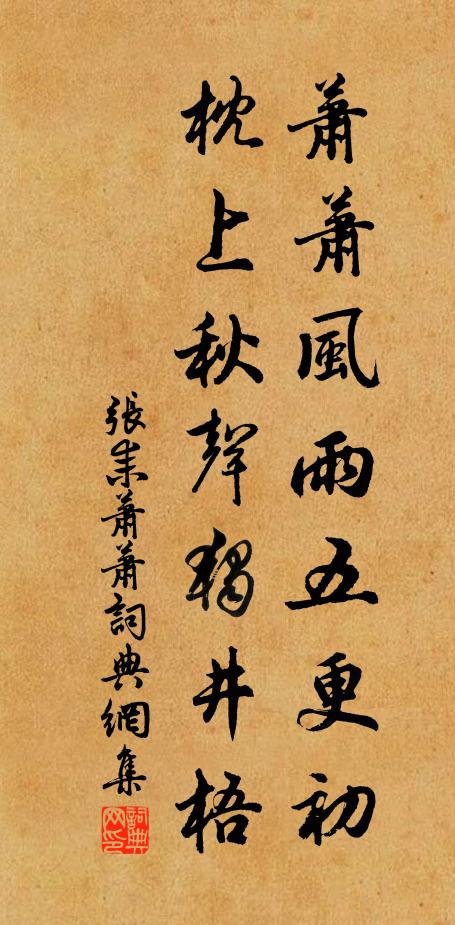 蕭蕭風雨五更初
枕上秋聲獨井梧
張耒蕭蕭詞典網集
詞典網印